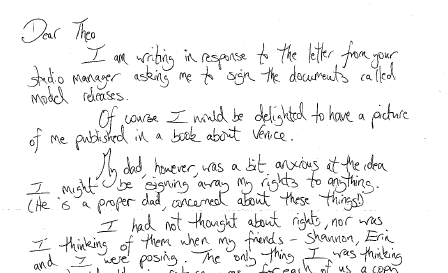 Dear Theo
I am writing in response to the letter from your
studio manager asking me to sign the documents called
model releases.
Of course I would be delighted to have a picture
of me published in a book about Venice.
My dad, however, was a bit anxious at the idea
I might be signing away my rights to anything.
(He is a proper dad, concerned about these things!)
I had not thought about rights, nor was
I thinking of them when my friends - Shannon, Erin
and I were posing. The only thing I was thinking
for each of us a copy